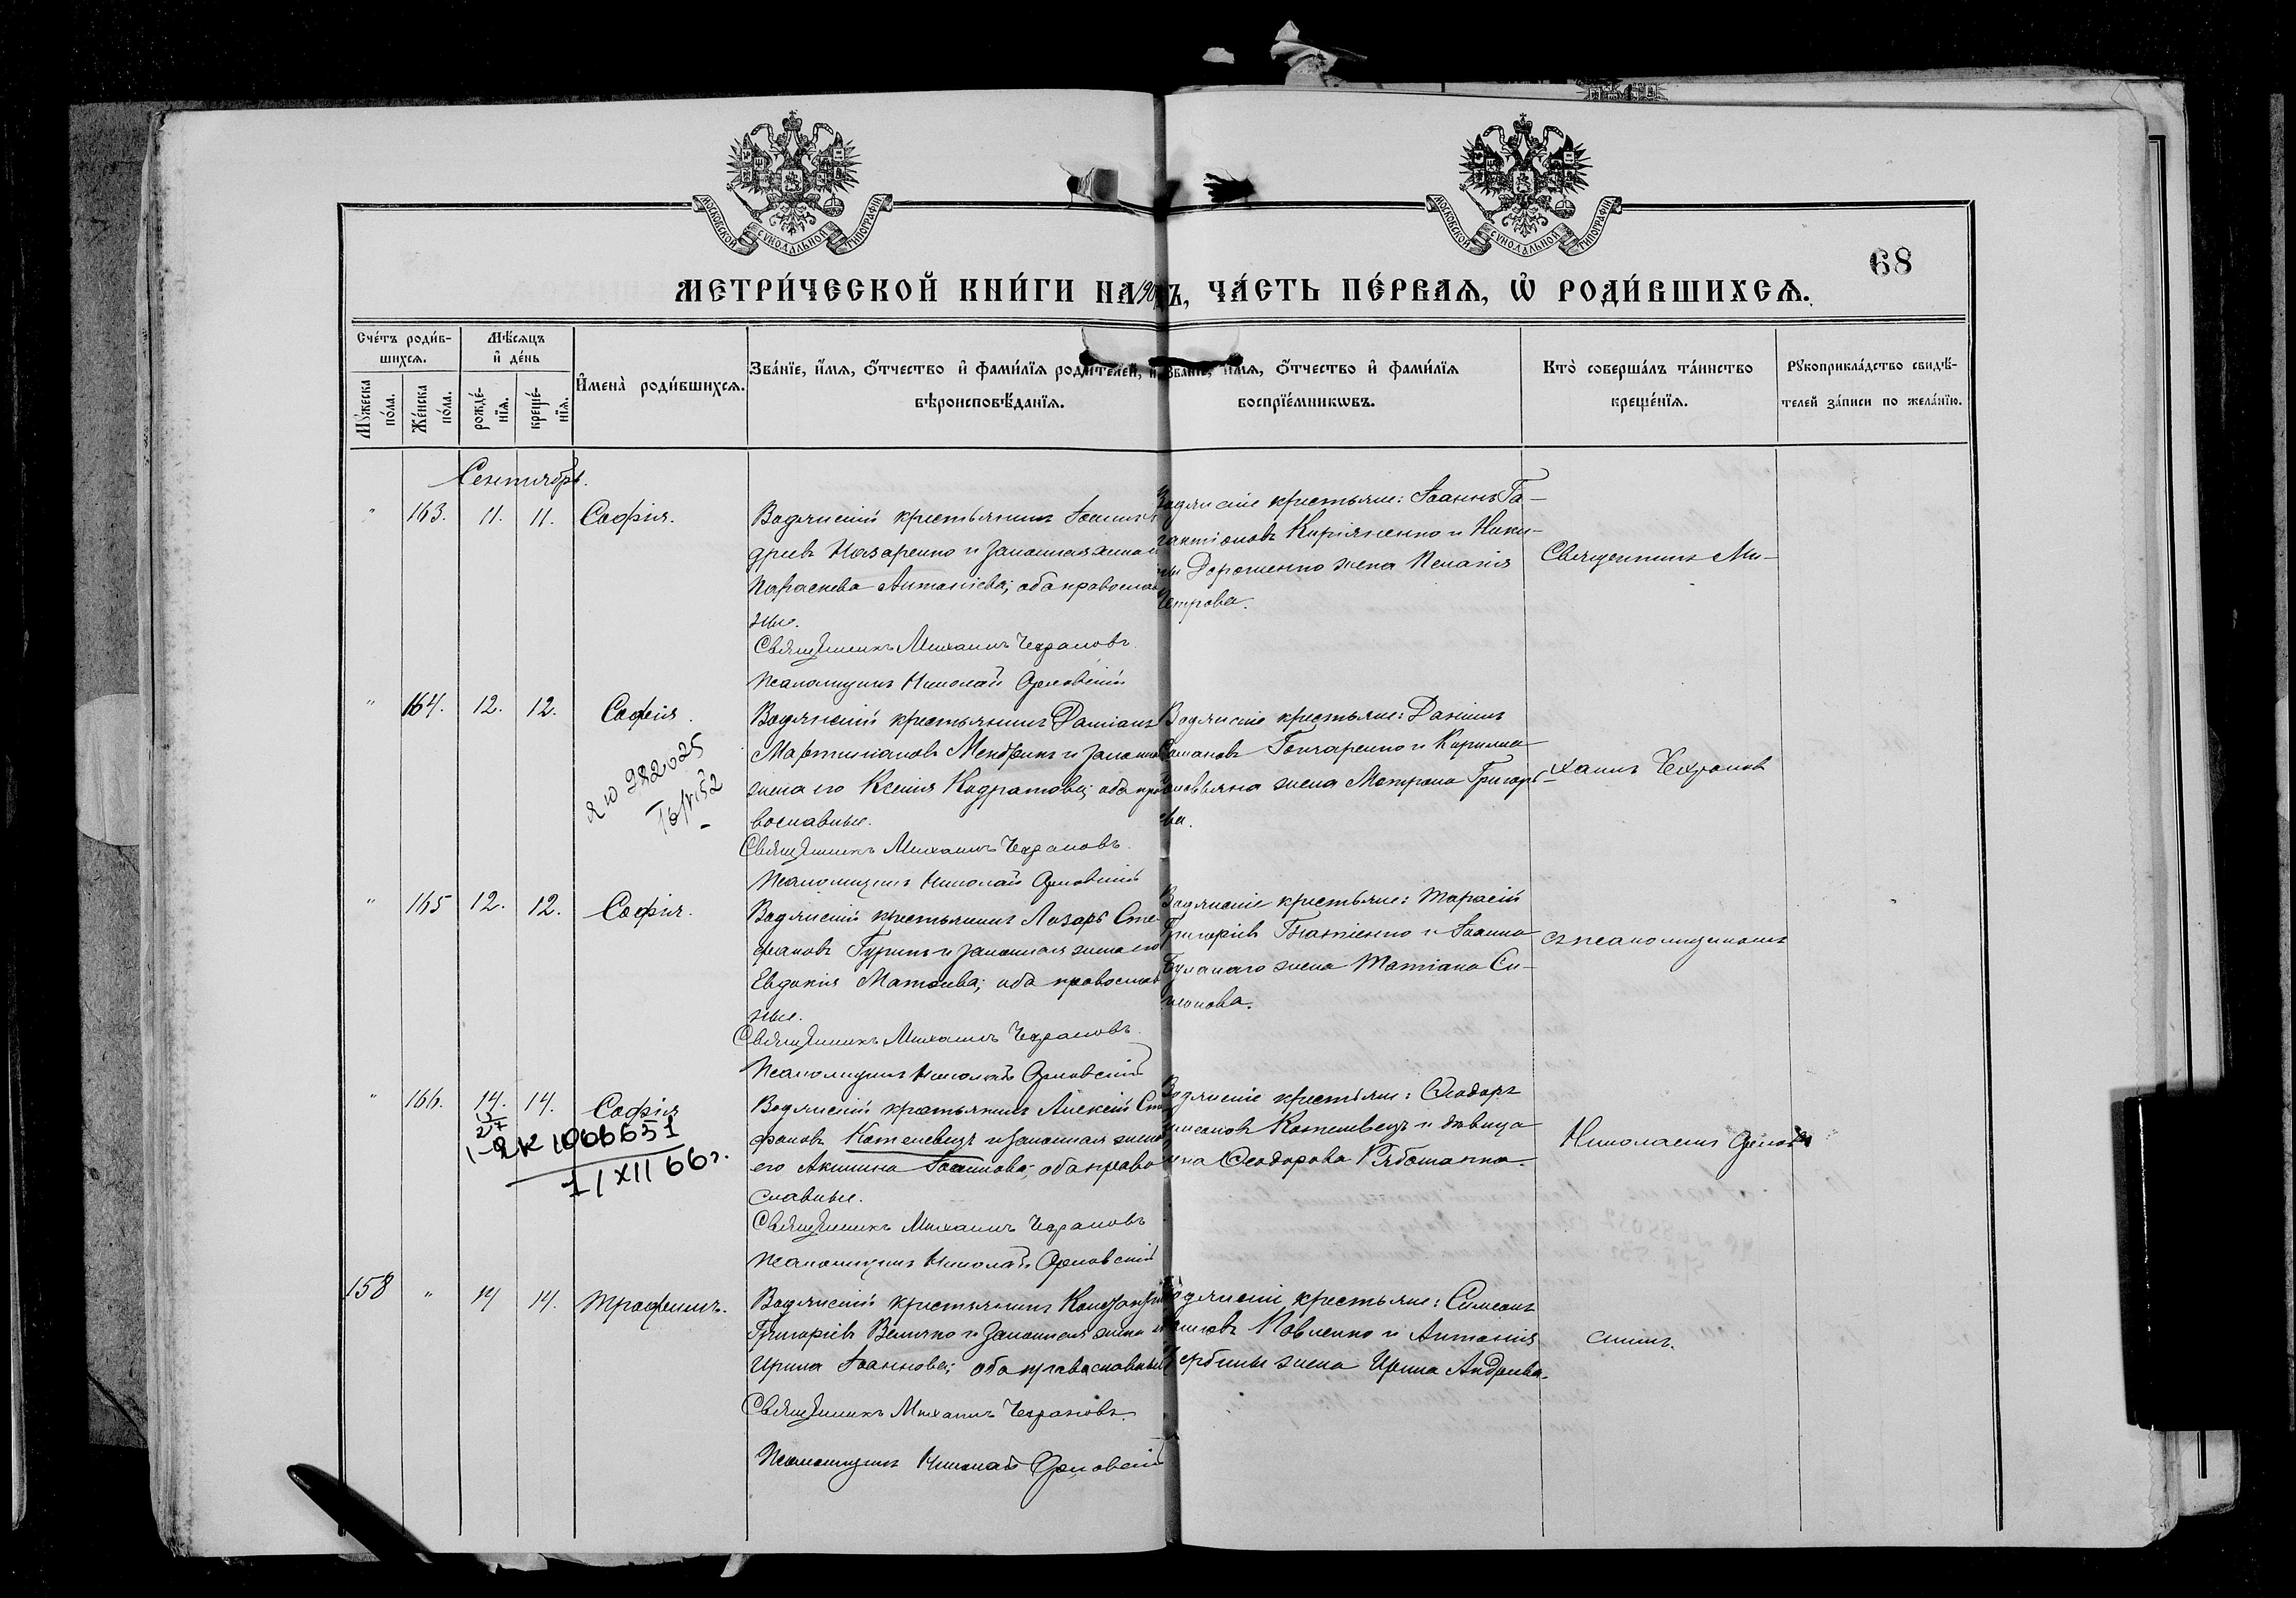 МОСКОВСКОЙ СУНОДАЛЬНОЙ ТИПОГРАФІИ
МОСКОВСКОЙ СУНОДАЛЬНОЙ ТИПОГРАФІИ
68
МЕТРИ́ЧЕСКОЙ КНИ́ГИ НА 190 Ъ, ЧА́СТЬ ПЕ́РВАѦ, Ѡ҆ РОДИ́ВШИХСѦ.
Сче́тъ роди́в-
шихсѧ.
Мѣ́сѧцъ
и҆ де́нь
Мꙋ́жеска
по́ла.
Же́нска
по́ла.
рожде́-
нїѧ.
креще́-
нїѧ.
И҆мена̀ роди́вшихсѧ.
Зва́нїе, и҆́мѧ, ѻ҆́тчество и҆ фами́лїѧ роди́телей, и҆
вѣроисповѣ́данїѧ.
Зва́нїе, и҆́мѧ, ѻ҆́тчество и҆ фами́лїѧ
воспрїе́мникѡвъ.
Кто̀ соверша́лъ та́инство
креще́нїѧ.
Рꙋкоприкла́дство свидѣ́-
телей за́писи по жела́нїю.
Сентябрь.
" 163. 11. 11. Софія.
Водянскій крестьянинъ Іоаннъ
дріевъ Назаренко и законная жена
Параскева Антоніева; оба православ
ные.
Священникъ Михаилъ Чехрановъ
Псаломщикъ Николай Орловскій
Водянскіе крестьяне: Іоаннъ Га-
лактіоновъ Киріяченко и Ники-
ты Дорошенко жена Пелагія
Петрова.
Священникъ Ми-
" 164. 12. 12. Софія.
2 ю 982025
Водянскій крестьянинъ Даміанъ
Мартиніановъ Мендрик и законная
жена его Ксенія Кодратова; оба пра
вославные.
Священникъ Михаилъ Чехрановъ.
Псаломщикъ Николай Орловскій
Водянскіе крестьяне: Даніилъ
Романовъ Гончаренко и Кирилла
жена Матрона Григорь-
ева.
хаилъ Чехрановъ
" 165 12. 12. Софія.
Водянскій крестьянинъ Лазарь Сте-
фановъ Гуринъ и законная жена его
Евдокія Матѳіева; оба православ
ные.
Священникъ Михаилъ Чехрановъ.
Псаломщикъ Николай Орловскій
Водянскіе крестьяне: Тарасій
Григоріевъ Игнатіенко и Іоанна
Буланаго жена Татіана Си-
меонова.
съ псаломщикомъ
" 166. 14. 14. Софія
1-2К 1066651
1/XII 66г.
Водянскій крестьянинъ Алексій Сте
фановъ Котелевецъ и законная жена
его Акилина Іоаннова; оба право
славные.
Священникъ Михаилъ Чехрановъ
Псаломщикъ Николай Орловскій
Водянскіе крестьяне: Ѳеодоръ
Симеоновъ Котелевецъ и дѣвица
Ѳеодорова Рябошапка.
Николаемъ Орлов
158 " 14 14. Трофимъ.
Водянскій крестьянинъ
Григоріевъ Величко и законная жена
Ирина Іоаннова; оба православные
Священникъ Михаилъ Чехрановъ.
Псаломщикъ Николай Орловскій
Водянскіе крестьяне: Симеонъ
Павленко и Антонія
Вербины жена Ирина Андреева.
скимъ.